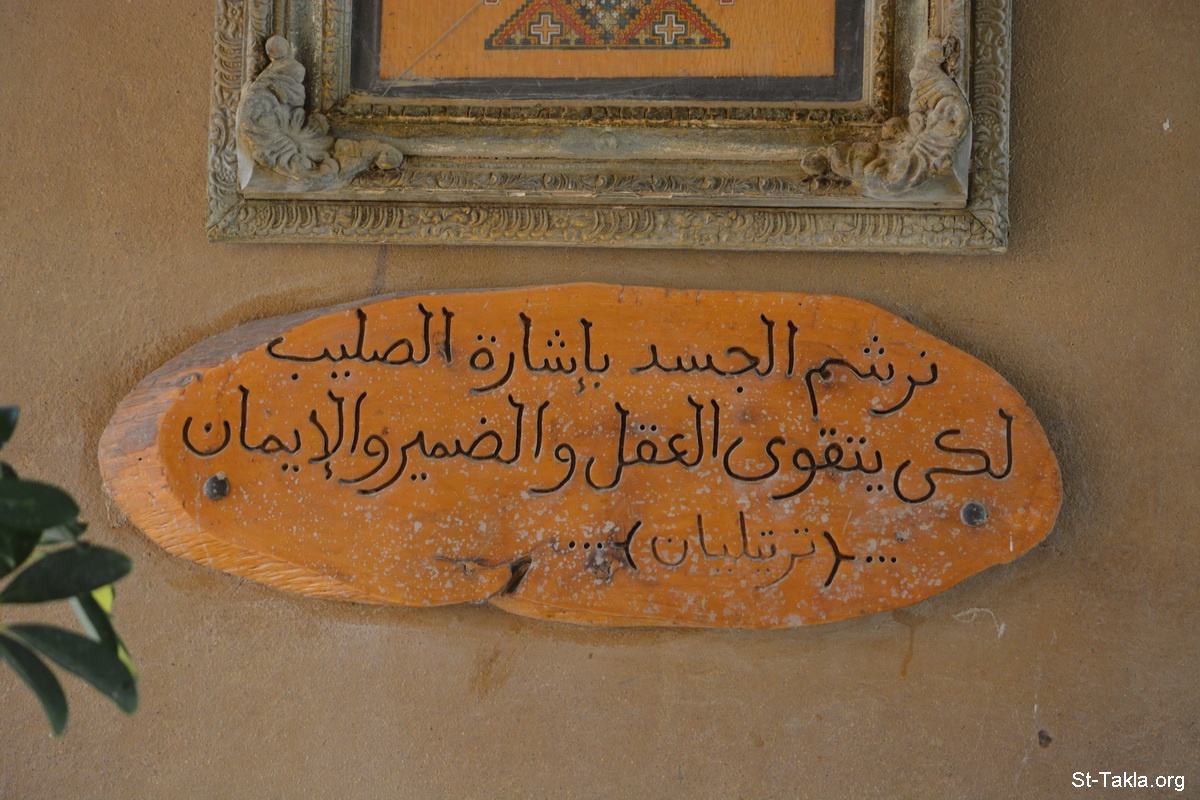 نرشم الجسد بإشارة الصليب
لكى يتقوى العقل والضمير والإيمان
...(ترتيليان)....
St-Takla.org